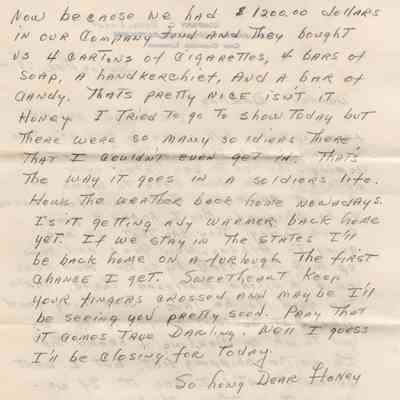 Now because we had $1200.00 dollars
in our Company fund and they bought
us 4 cartons of cigarettes, 4 bars of
soap, a handkerchief, and a bar of
candy. Thats pretty nice isn't it
Honey I tried to go to show today but
there were so many soldiers there
that I couldnt even get in. Thats
the way it goes in a soldiers life.
Hows the weather back home nowadays.
Is it getting any warmer back home
yet. If we stay in the states I'll
be back home on a forough the first
chance I get. Sweetheart keep
your fingers crossed and maybe I'll
be seeing you pretty soon. Pray that
it comes true Darling. Well I guess
I'll be closing for today.
So Long Dear Honey